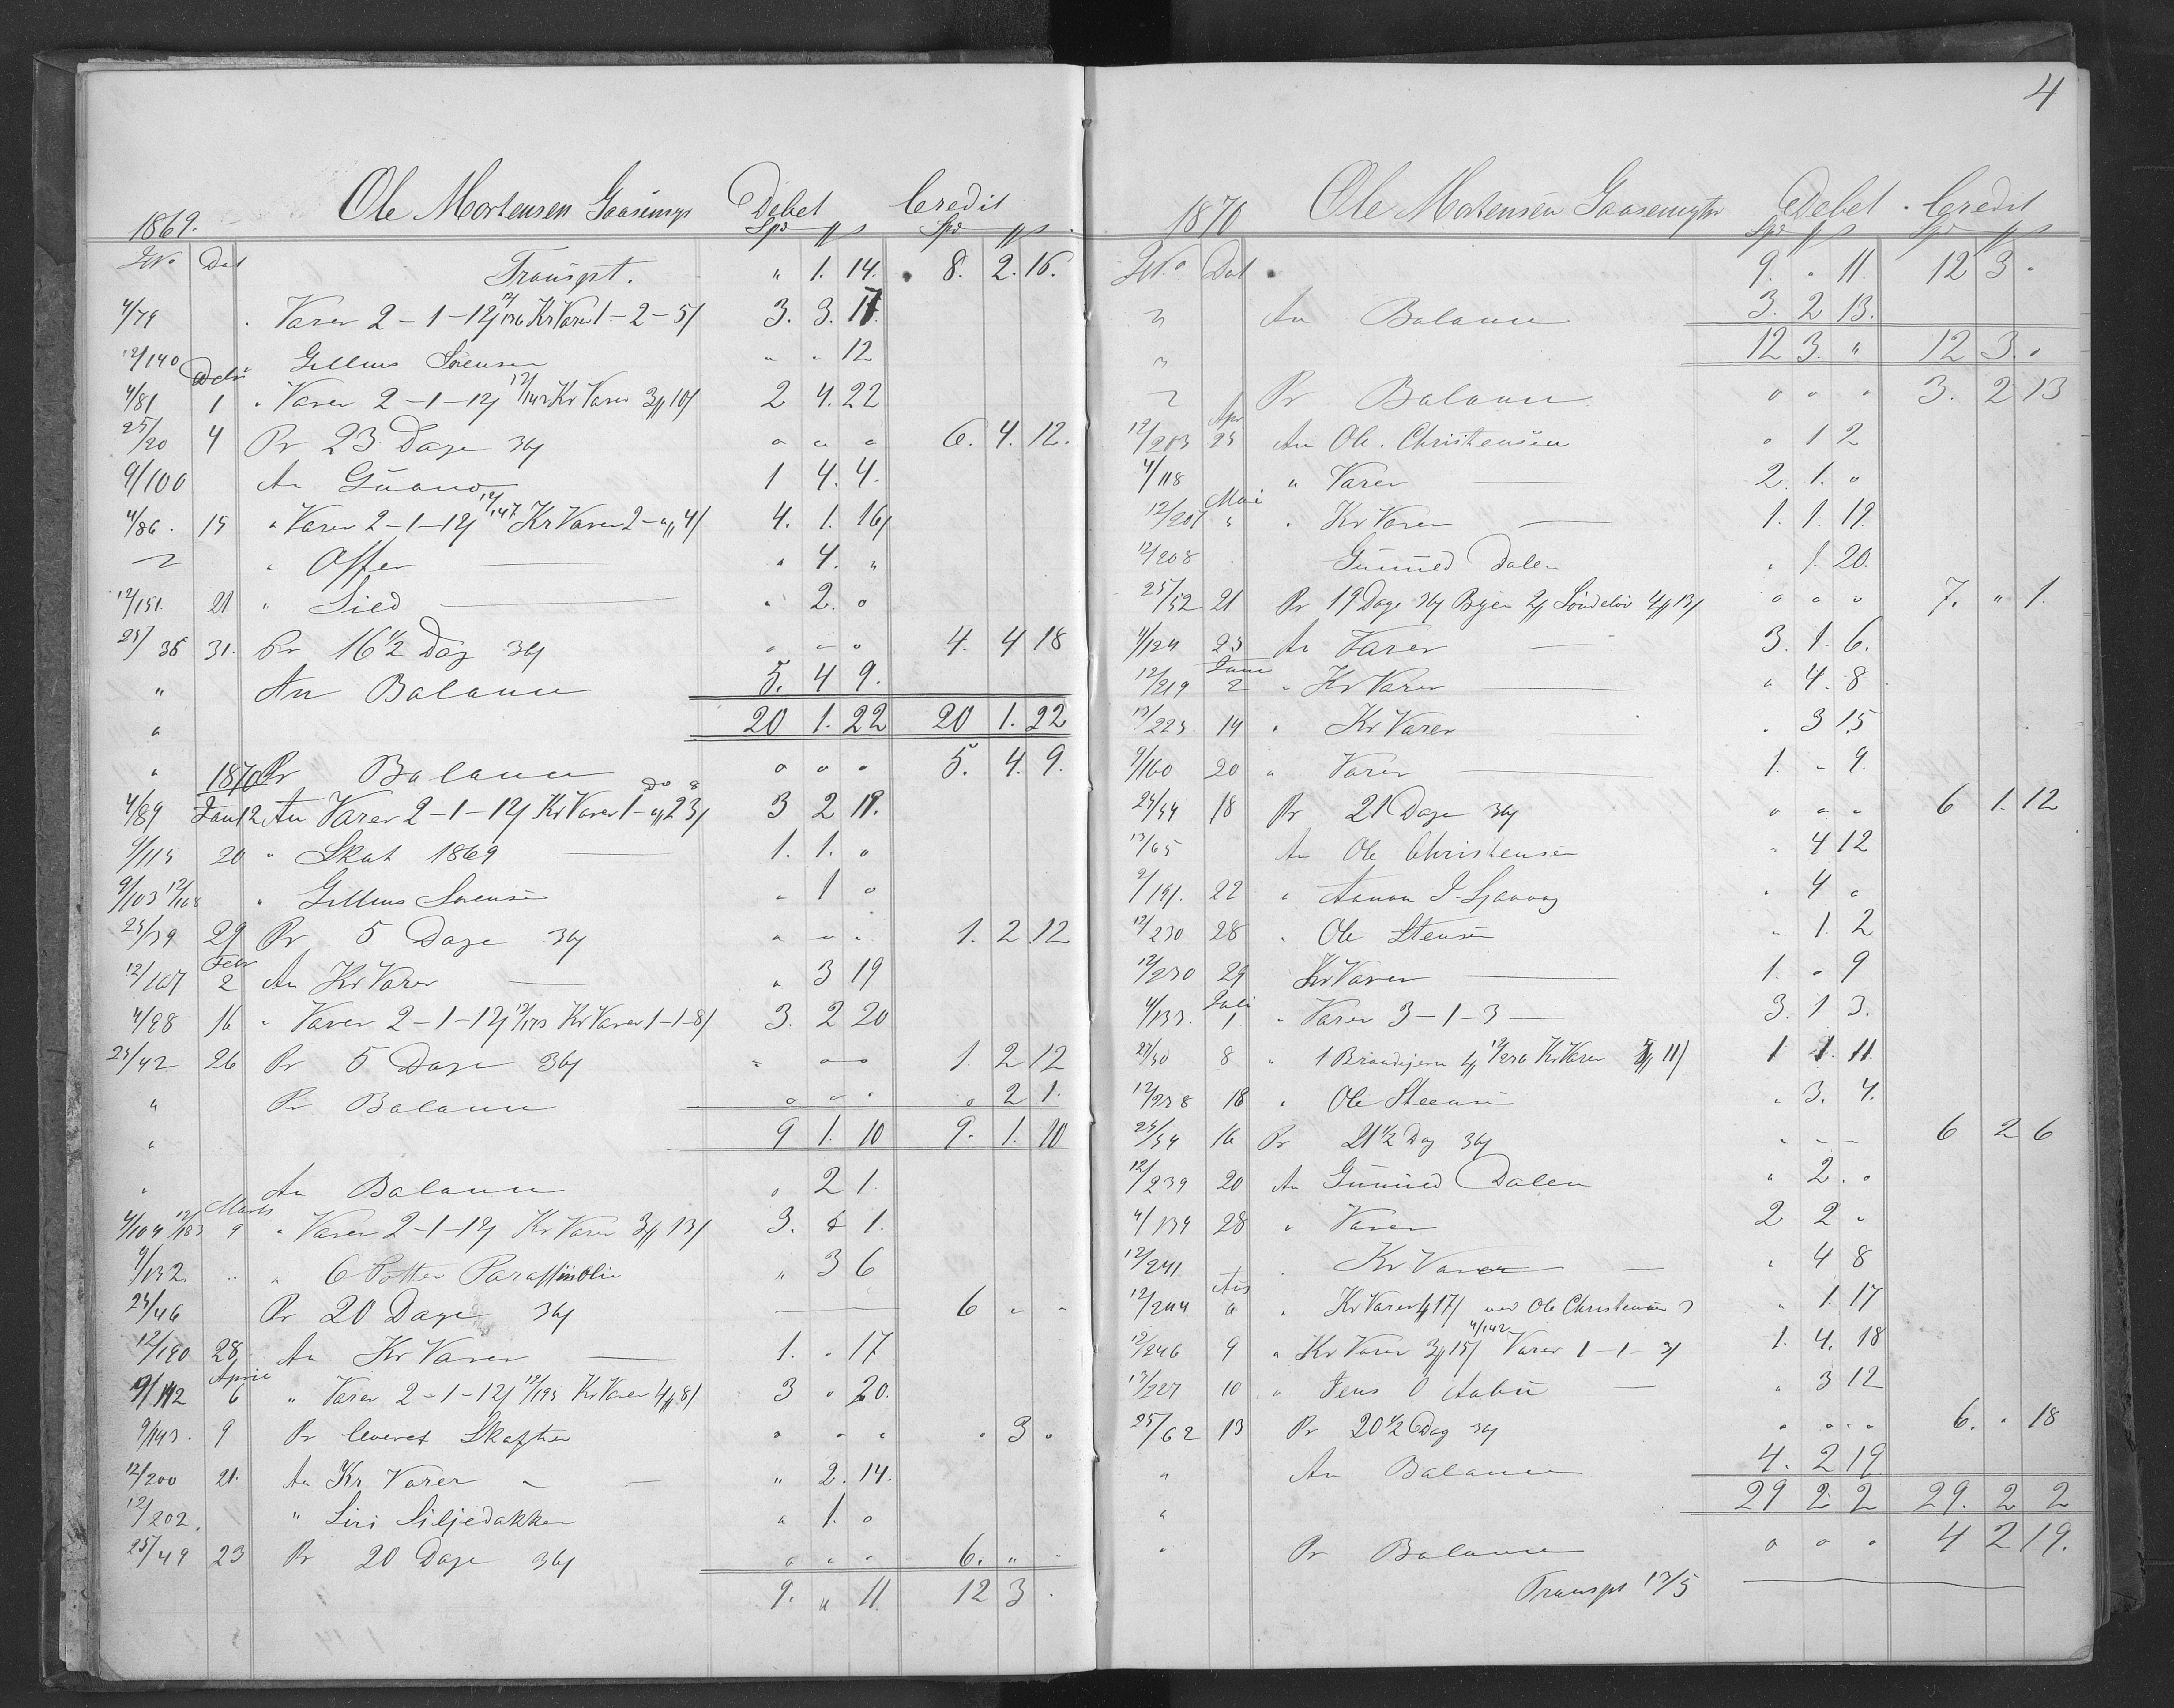 1869. Ole Mortensen Gaasemyr Debet Credit
Spd ₰ s Spd ₰ s
No Dat Transpt. " 1. 14. 8. 2. 16.
4/79 " Varer 2-1-12/ 12/136 Kr Varer 1-2-5/ 3. 3. 17
12/140 Gellius Sørensen " " 12
Debr
4/81 1 " Varer 2-1-12/ 12/142 Kr Varer 3/10/ 2 4. 22
25/20 4 Pr 23 Dage 36/ " " " 6. 4. 12.
9/100 An Guano 1 4. 4.
4/86. 15 " Varer 2-1-12/ 12/147 Kr Varer 2-"-4/ 4. 1. 16/
" Offer " 4. "
12/151. 21 " Sild " 2. "
25/35 31. Pr 16 1/2 Dag 36/ " " " 4. 4 18
" An Balance 5. 4 9.
" 20 1. 22 20 1. 22
" 1870 Pr Balance " " " 5. 4. 9.
4/89 Jan 12 An Varer 2-1-12/ Kr Varer 1-"-23/ 3 2 19.
9/115 20 " Skat 1869 1. 1. "
9/103 12/168 " Gellius Sørensen " 1 "
25/39 29 Pr 5 Dage 36/ " " " 1. 2 12
Febr
12/167 2 An Kr Varer " 3 19
4/98 16 " Varer 2-1-12/ 12/173 Kr Varer 1-1-8/ 3. 2 20
25/42 26 Pr 5 Dage 36/ " " " 1. 2 12
" Pr Balance " " " " 2 1.
" 9 1. 10 9. 1. 10
" An Balance " 2 1.
Marts
4/104 12/183 9 " Varer 2-1-12/ Kr Varer 3/13/ 3. 1.
9/132. " " 6 Potter Paraffinolie " 3 6
25/46 Pr 20 Dage 36/ 6 " "
12/190 28 An Kr Varer 1. " 17
April
4/112 6 " Varer 2-1-12/ 12/195 Kr Varer 4/8/ 3 " 20.
9/143. 9 Pr leveret Skafter " " " " 3 "
12/200 21. An Kr Varer " 2. 14.
12/202. " Siri Siljedakken " 1. "
25/49 23 Pr 20 Dage 36/ " " " 6. " "
9. " 11 12 3 "
4
1870 Ole Mortensen Gaasemyr Debet Credit
Spd ₰ s Spd ₰ s
No Dat 9. " 11. 12 3 "
An Balance 3. 2 13.
12 3. " 12 3. "
Pr Balance " " " 3. 2 13
Apr
12/203 25 An Ole Christensen " 1 2
4/118 " Varer 2. 1. "
Mai
12/207 " " Kr Varer 1. 1. 19.
12/208 Gunuld Dalen " 1. 20.
25/52 21 Pr 19 Dage 36/ Bygn 2/ Søndeløv 4/13/ " " " 7. " 1.
4/124 25 An Varer 3. 1. 6.
Juni
12/219 2 " Kr Varer " 4. 8
12/223 14 " Kr Varer " 3 15
9/160 20 " Varer 1. " 9
25/54 18 Pr 21 Dage 36/ " " " 6 1. 12
13/65 An Ole Christensen " 4 12
9/191. 22 " " 4 "
12/230 28 " Ole Steensen " 1. 2
12/230 29 Kr Varer 1. " 9
Juli
4/133 1. " Varer 3-1-3 3. 1 3.
8 " 1 12/236 Kr Varer 11/ 1 1. 11
12/238 18 " Ole Steensen " 3. 4.
25/59 16 Pr 21 1/2 Dag 36/ " " " 6 2 6
12/239 20 An Gunuld Dalen " 2. "
4/139 28 " Varer 2 2 "
12/241 Kr Varer " 4 8
Aug
12/244 6 " Kr Varer 1/17/ ved Ole Christensen " 1. 17
12/246 9 " Kr Varer 3/15/ 4/142 Varer 1-1-3/ 1. 4. 18
13/227 10 " Jens O Aabü " 3 12
25/62 13 Pr 20 1/2 Dag 36/ " " " 6. " 18
" An Balance 4. 2 19
" 29 2 2 29. 2 2
" Pr Balance " " " 4 2 19.
Transpt 13/5